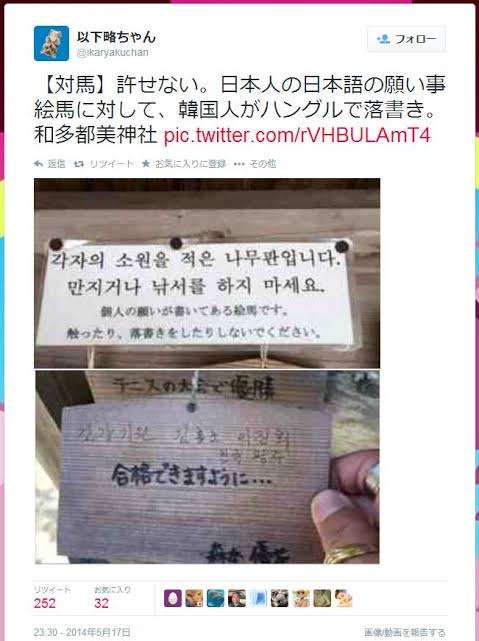 以下略ちゃん
@ikaryakuchan
フォロー
【対馬】許せない。日本人の日本語の願い事
絵馬に対して、韓国人がハングルで落書き。
和多都美神社 pic.twitter.com/rVHBULAmT4
返信 リツイート お気に入りに登録 その他
각자의 소원을 적은 나무판입니다.
만지거나 낚서를 하지 마세요.
個人の願いが書いてある絵馬です。
触ったり、落書きをしたりしないでください。
テニスの大会で優勝
합격기원
合格できますように…
リツイート お気に入り
252 32
23:30 - 2014年5月17日
画像/動画を報告する